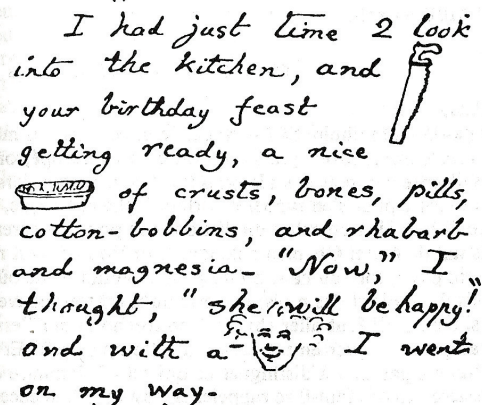 I had just time 2 look
into the kitchen, and
your birthday feast
getting ready, a nice
of crusts, bones, pills,
cotton-bobbins, and rhubarb
and magnesia- "Now," I
thought, "she will be happy!"
and with a I went
on my way.